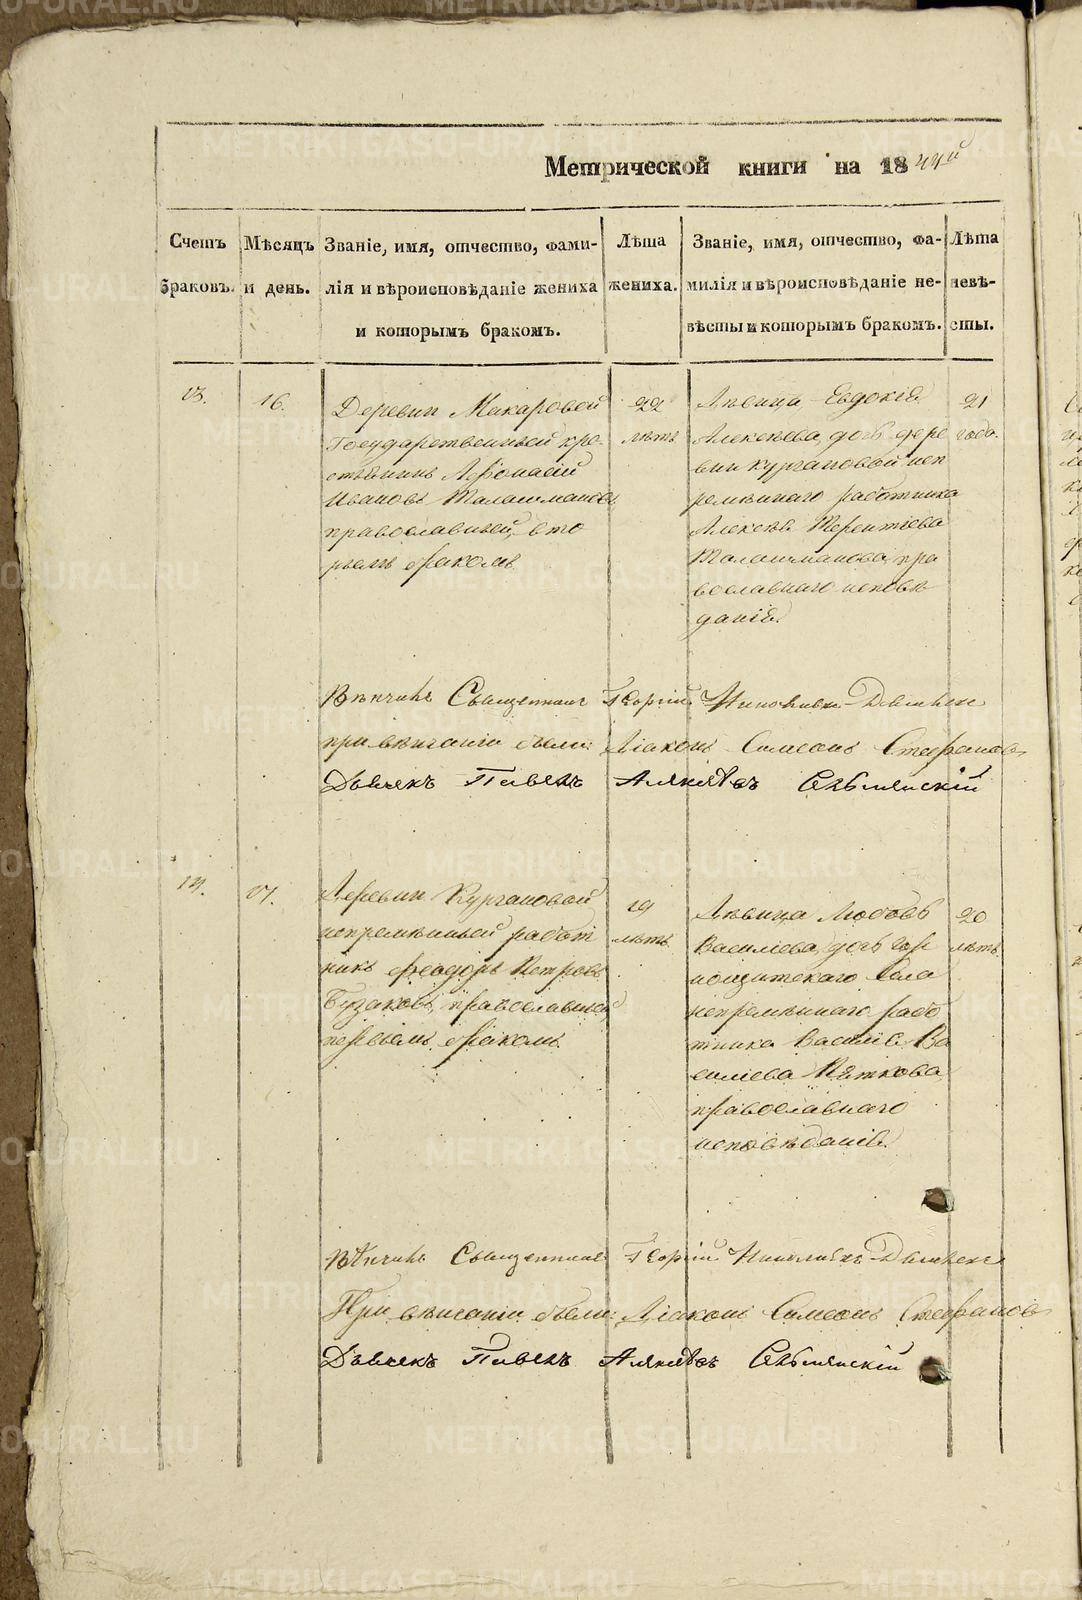 Метрической книги на 1844й
Счетъ браковъ.
Мѣсяцъ и день.
Званіе, имя, отчество, фами-
лія и вѣроисповѣданіе жениха
и которымъ бракомъ.
Лѣта
жениха.
Званіе, имя, отчество, фа-
милія и вѣроисповѣданіе не-
вѣсты и которымъ бракомъ.
Лѣта
невѣ-
сты.
13.
16.
Деревни Макаровой
Государственный кре
стьянинъ Афонасій
Ивановъ Талашмановъ
православный, вто
рымъ бракомъ
22
лѣтъ
Дѣвица Евдокія
Алексѣева, дочь дере
вни Кургановой неп
ремѣннаго работника
Алексѣя Терентіева
Талашманова, пра
вославнаго исповѣ
данія.
21
года.
Вѣнчилъ Священник Георгій
при вѣнчаніи были: Діаконъ Симеонъ Стефановъ
Дьячекъ Павелъ
14.
17.
Деревни Кургановой
непремѣнный работ
никъ Феодоръ Петровъ
православный
первымъ бракомъ.
19
лѣтъ.
Дѣвица Любовь
Василіева, дочь
села
непремѣннаго рабо
тника Василія Ва
силіева Пяткова
православнаго
исповѣданія.
20
лѣтъ.
Вѣнчилъ Священник Георгій
При вѣнчаніи были: Діаконъ Симеонъ Стефановъ
Дьячекъ Павелъ
METRIKI.GASO-URAL.RU